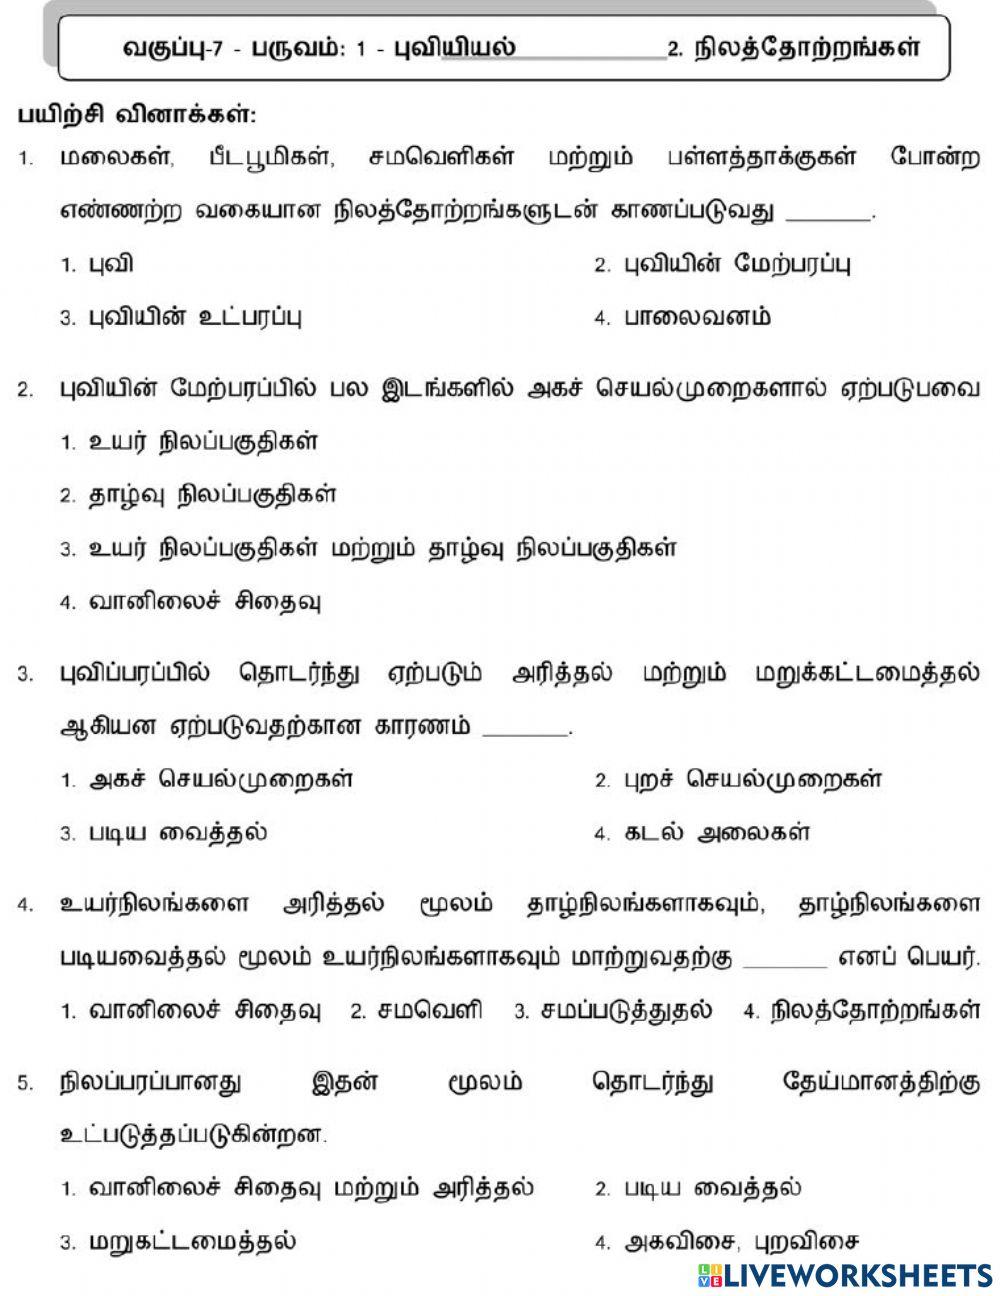 வகுப்பு-7 - பருவம்: 1 - புவியியல்__________2. நிலத்தோற்றங்கள்
பயிற்சி வினாக்கள்:
1. மலைகள், பீடபூமிகள், சமவெளிகள் மற்றும் பள்ளத்தாக்குகள் போன்ற
எண்ணற்ற வகையான நிலத்தோற்றங்களுடன் காணப்படுவது ______.
1. புவி 2. புவியின் மேற்பரப்பு
3. புவியின் உட்பரப்பு 4. பாலைவனம்
2. புவியின் மேற்பரப்பில் பல இடங்களில் அகச் செயல்முறைகளால் ஏற்படுபவை
1. உயர் நிலப்பகுதிகள்
2. தாழ்வு நிலப்பகுதிகள்
3. உயர் நிலப்பகுதிகள் மற்றும் தாழ்வு நிலப்பகுதிகள்
4. வானிலைச் சிதைவு
3. புவிப்பரப்பில் தொடர்ந்து ஏற்படும் அரித்தல் மற்றும் மறுக்கட்டமைத்தல்
ஆகியன ஏற்படுவதற்கான காரணம் ______.
1. அகச் செயல்முறைகள் 2. புறச் செயல்முறைகள்
3. படிய வைத்தல் 4. கடல் அலைகள்
4. உயர்நிலங்களை அரித்தல் மூலம் தாழ்நிலங்களாகவும், தாழ்நிலங்களை
படியவைத்தல் மூலம் உயர்நிலங்களாகவும் மாற்றுவதற்கு ______ எனப் பெயர்.
1. வானிலைச் சிதைவு 2. சமவெளி 3. சமப்படுத்துதல் 4. நிலத்தோற்றங்கள்
5. நிலப்பரப்பானது இதன் மூலம் தொடர்ந்து தேய்மானத்திற்கு
உட்படுத்தப்படுகின்றன.
1. வானிலைச் சிதைவு மற்றும் அரித்தல் 2. படிய வைத்தல்
3. மறுகட்டமைத்தல் 4. அகவிசை, புறவிசை
LIVE LIVEWORKSHEETS